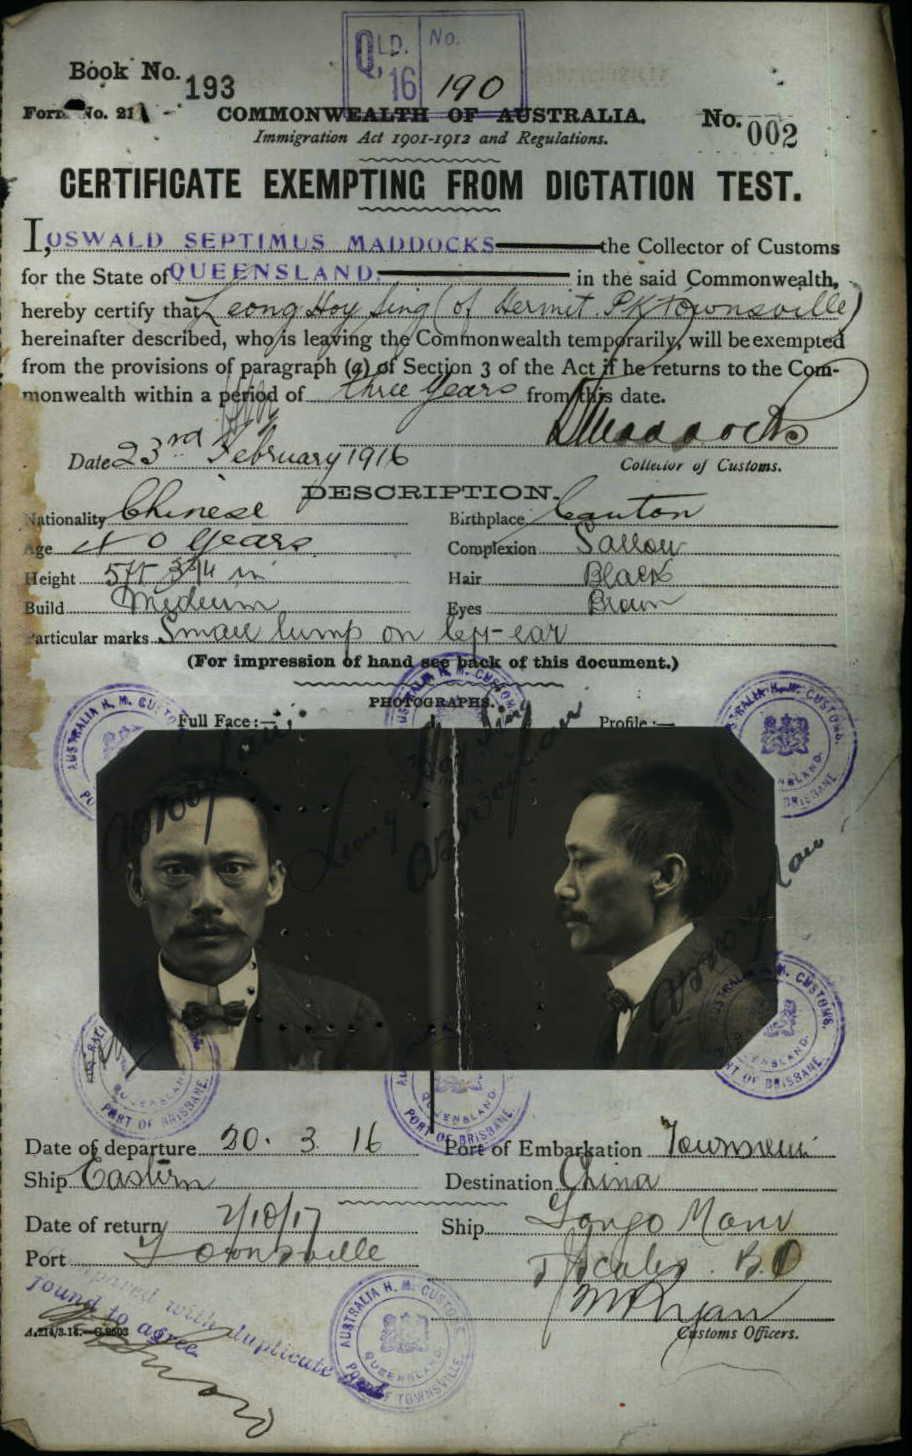 QLD. No.
16 190
Book No. 193
Form No. 21 COMMONWEALTH OF AUSTRALIA. No. 002
Immigration Act 1901-1912 and Regulations.
CERTIFICATE EXEMPTING FROM DICTATION TEST.
I, OSWALD SEPTIMUS MADDOCKS the Collector of Customs
for the State of QUEENSLAND. in the said Commonwealth,
hereby certify that Leong Hoy Sing (of Hermit Pk Townsville)
hereinafter described, who is leaving the Commonwealth temporarily, will be exempted
from the provisions of paragraph (a) of Section 3 of the Act if he returns to the Com-
monwealth within a period of three years from this date.
Maddocks
Date 23rd February 1916 Collector of Customs.
DESCRIPTION.
Nationality Chinese Birthplace Canton
Age 40 years Complexion Sallow
Height 5ft 3¾ in Hair Black
Build Medium Eyes Brown
Particular marks Small lump on left ear
(For impression of hand see back of this document.)
PHOTOGRAPHS.
Full Face:— Profile:—
AUSTRALIA H. M. CUSTOMS.
QUEENSLAND.
PORT OF BRISBANE
Leong Hoy Sing
Date of departure 20. 3. 16 Port of Embarkation Townsville
Ship Eastern Destination China
Date of return 2/10/17 Ship Tango Maru
Port Townsville
Ryan
Customs Officers.
Compared with duplicate and
found to agree
AUSTRALIA H. M. CUSTOMS
QUEENSLAND.
PORT OF TOWNSVILLE.